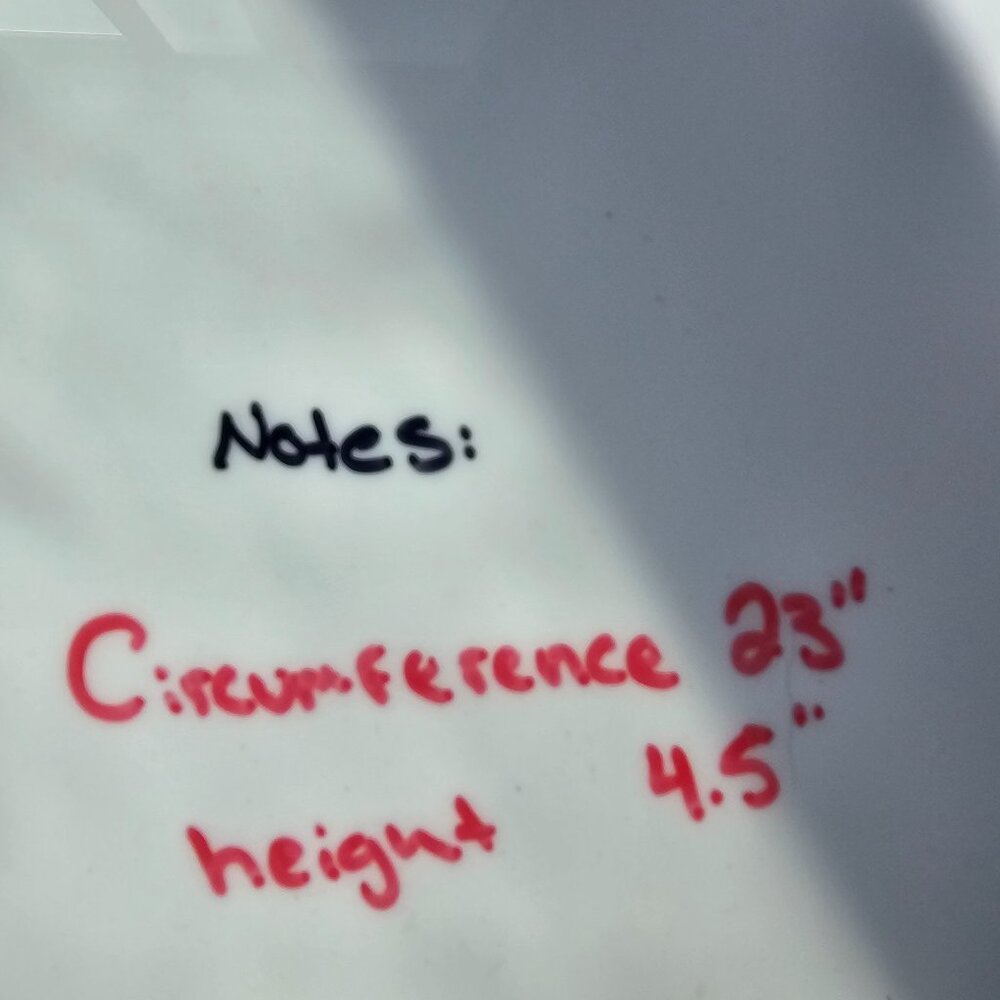 Notes:
Circumference 23"
height 4.5"